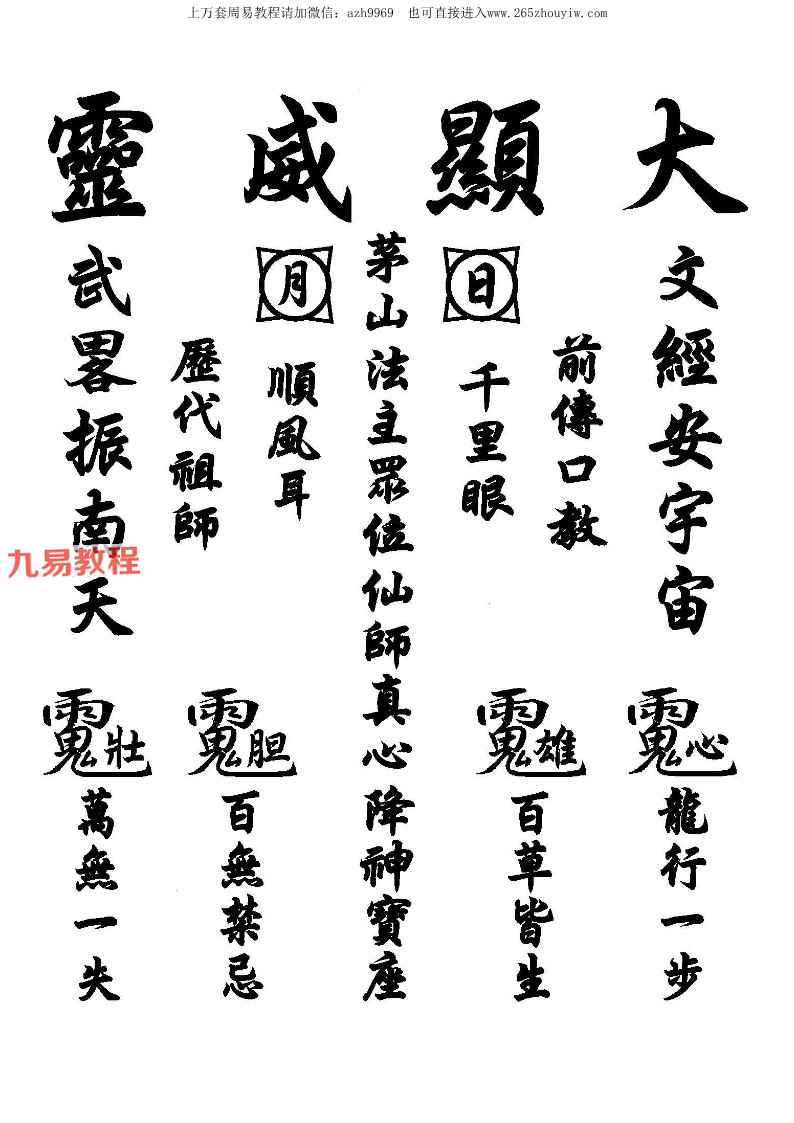 上万套周易教程请加微信：azh9969 也可直接进入www.265zhouyiw.com
大顯威靈
文經安宇宙
前傳口教
日
千里眼
茅山法主眾位仙師真心降神寶座
月
順風耳
歷代祖師
武畧振南天
心
龍行一步
雄
百草皆生
胆
百無禁忌
壯
萬無一失
九易教程